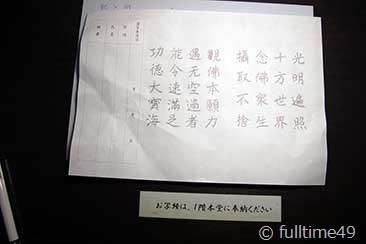 光明遍照
十方世界
念佛衆生
攝取不捨
觀佛本願力
遇无空過者
能令速滿足
功德大寳海
お写経は、1階本堂に奉納ください
© fulltime49